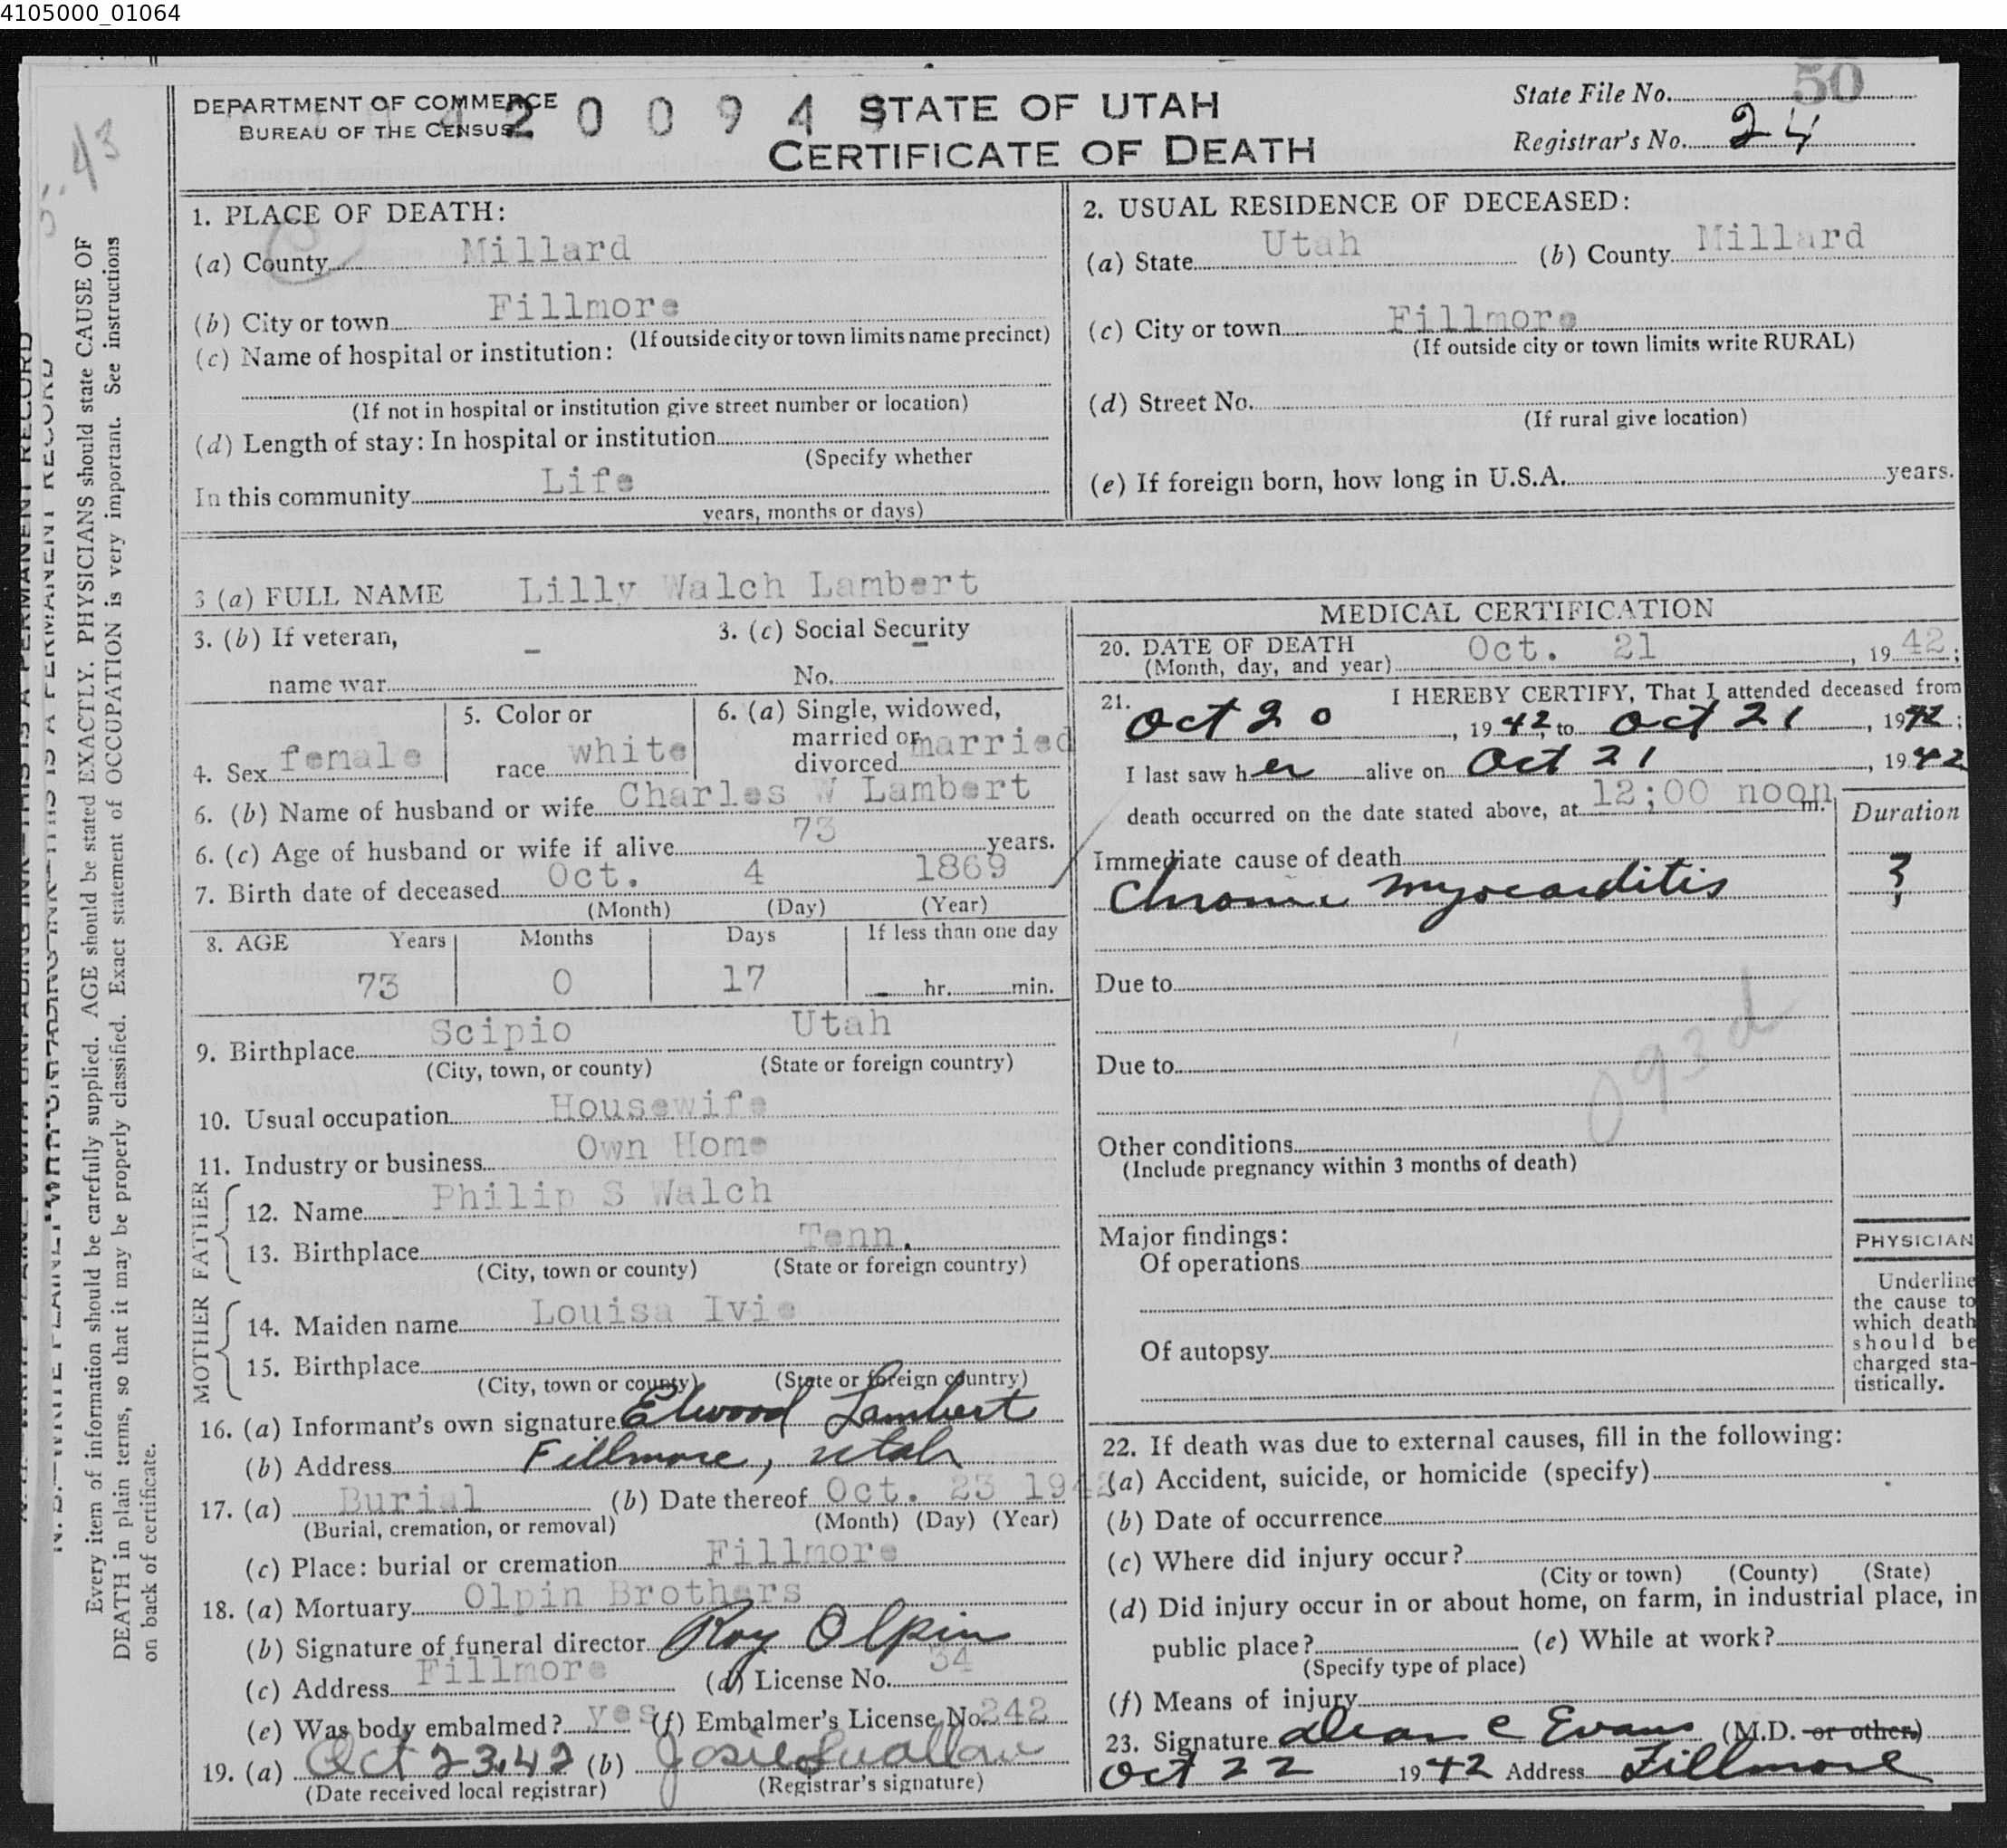 4105000_01064
DEPARTMENT OF COMMERCE
BUREAU OF THE CENSUS
2 0 0 9 4
STATE OF UTAH
CERTIFICATE OF DEATH
State File No. 50
Registrar's No. 24
43
1. PLACE OF DEATH:
(a) County Millard
(b) City or town Fillmore
(If outside city or town limits name precinct)
(c) Name of hospital or institution:
(If not in hospital or institution give street number or location)
(d) Length of stay: In hospital or institution
(Specify whether
In this community Life
years, months or days)
2. USUAL RESIDENCE OF DECEASED:
(a) State Utah (b) County Millard
(c) City or town Fillmore
(If outside city or town limits write RURAL)
(d) Street No.
(If rural give location)
(e) If foreign born, how long in U.S.A. years.
3 (a) FULL NAME Lilly Walch Lambert
3. (b) If veteran, 3. (c) Social Security
name war - No. -
4. Sex female
5. Color or
race white
6. (a) Single, widowed,
married or
divorced married
6. (b) Name of husband or wife Charles W Lambert
6. (c) Age of husband or wife if alive 73 years.
7. Birth date of deceased Oct. 4 1869
(Month) (Day) (Year)
8. AGE Years Months Days If less than one day
73 0 17 hr. min.
9. Birthplace Scipio Utah
(City, town, or county) (State or foreign country)
10. Usual occupation Housewife
11. Industry or business Own Home
FATHER
12. Name Philip S Walch
13. Birthplace Tenn.
(City, town or county) (State or foreign country)
MOTHER
14. Maiden name Louisa Ivie
15. Birthplace
(City, town or county) (State or foreign country)
16. (a) Informant's own signature Elwood Lambert
(b) Address Fillmore, Utah
17. (a) Burial (b) Date thereof Oct. 23 1942
(Burial, cremation, or removal) (Month) (Day) (Year)
(c) Place: burial or cremation Fillmore
18. (a) Mortuary Olpin Brothers
(b) Signature of funeral director Roy Olpin
(c) Address Fillmore (d) License No. 34
(e) Was body embalmed? yes (f) Embalmer's License No. 242
19. (a) Oct 23, 42 (b) Josie Swallow
(Date received local registrar) (Registrar's signature)
MEDICAL CERTIFICATION
20. DATE OF DEATH
(Month, day, and year) Oct. 21, 1942;
21. I HEREBY CERTIFY, That I attended deceased from
Oct 20, 1942, to Oct 21, 1942;
I last saw her alive on Oct 21, 1942
death occurred on the date stated above, at 12:00 noon m.
Duration
Immediate cause of death
Chronic myocarditis ?
Due to
Due to
093d
Other conditions
(Include pregnancy within 3 months of death)
Major findings:
Of operations
Of autopsy
PHYSICIAN
Underline
the cause to
which death
should be
charged sta-
tistically.
22. If death was due to external causes, fill in the following:
(a) Accident, suicide, or homicide (specify)
(b) Date of occurrence
(c) Where did injury occur?
(City or town) (County) (State)
(d) Did injury occur in or about home, on farm, in industrial place, in
public place? (e) While at work?
(Specify type of place)
(f) Means of injury
23. Signature Dean C Evans (M.D. or other)
Oct 22 1942 Address Fillmore
Every item of information should be carefully supplied. AGE should be stated EXACTLY. PHYSICIANS should state CAUSE OF
DEATH in plain terms, so that it may be properly classified. Exact statement of OCCUPATION is very important. See instructions
on back of certificate.